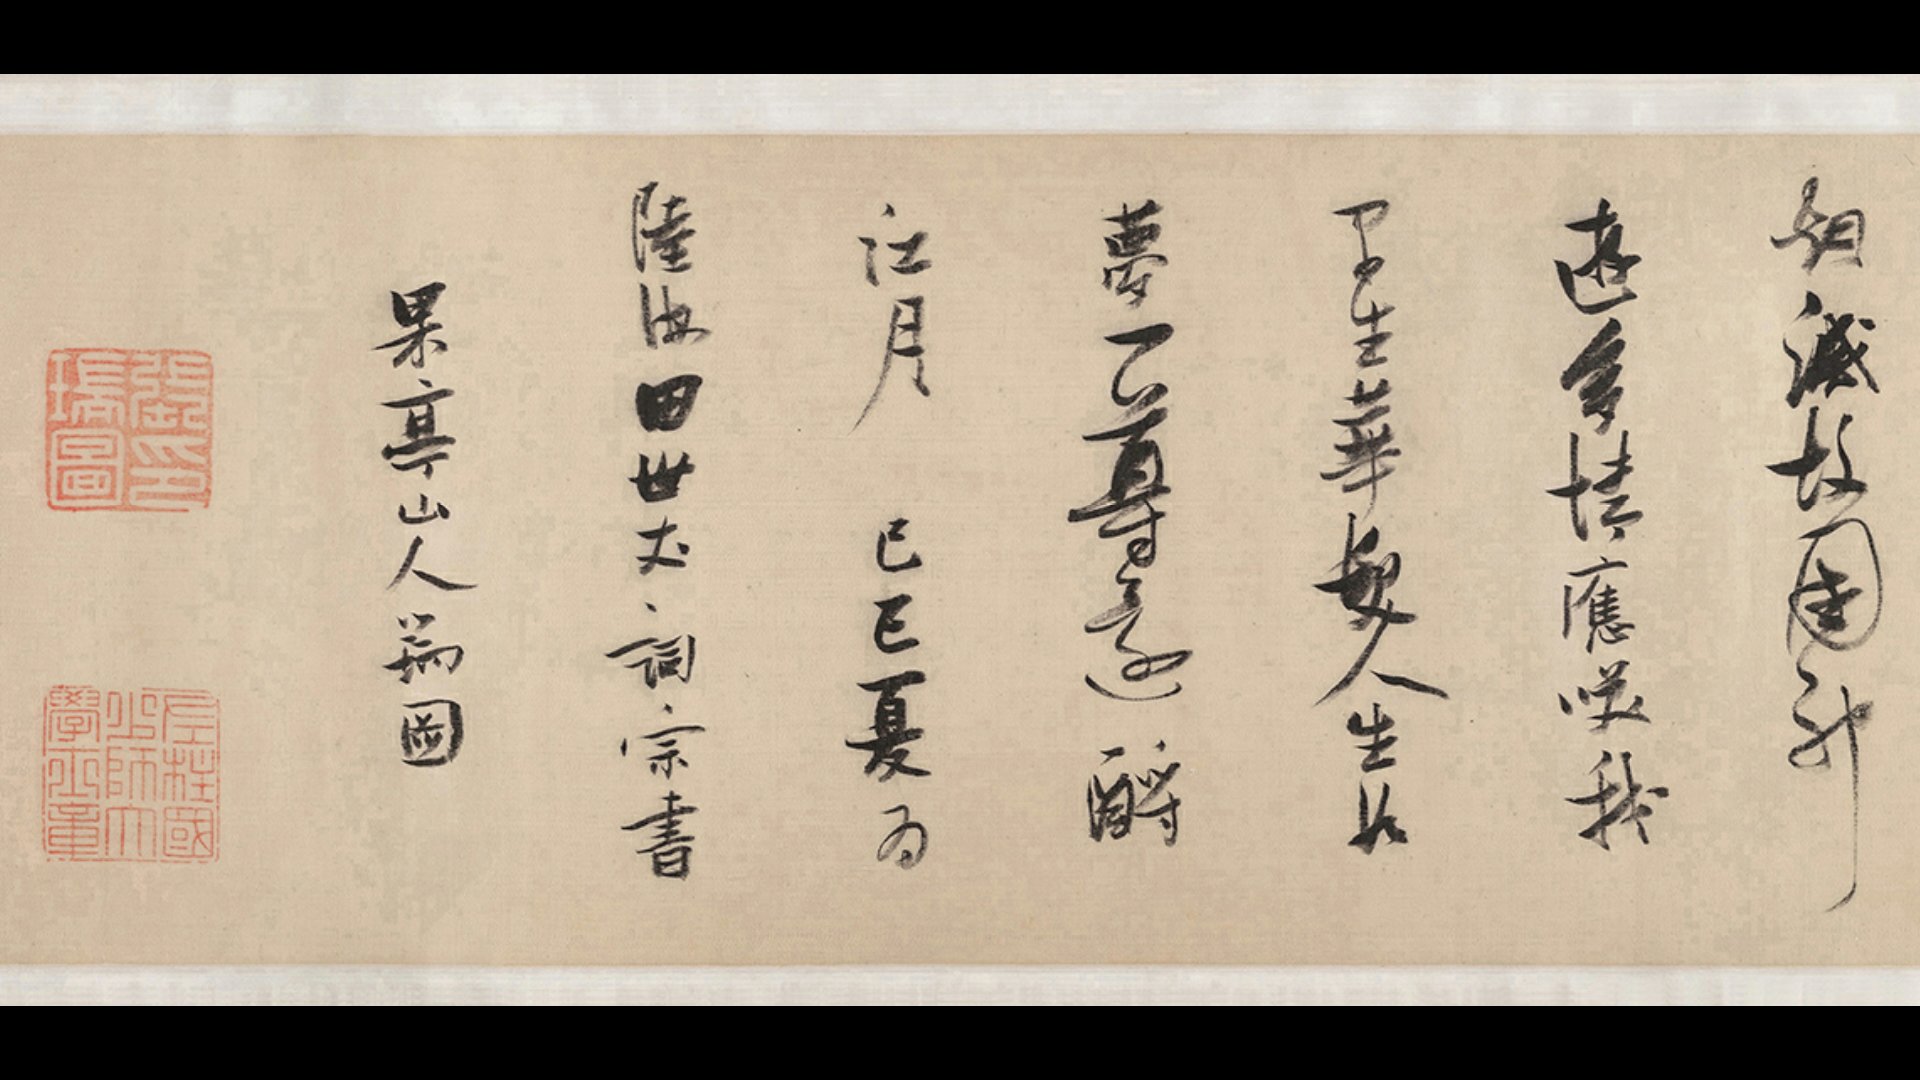 烟滅故國神
遊多情應咲我
早生華髮人生如
夢一尊還酹
江月 己巳夏為
陸海田世丈詞宗書
果亭山人瑞圖
張印
瑞圖
左柱國
少師大
學士章